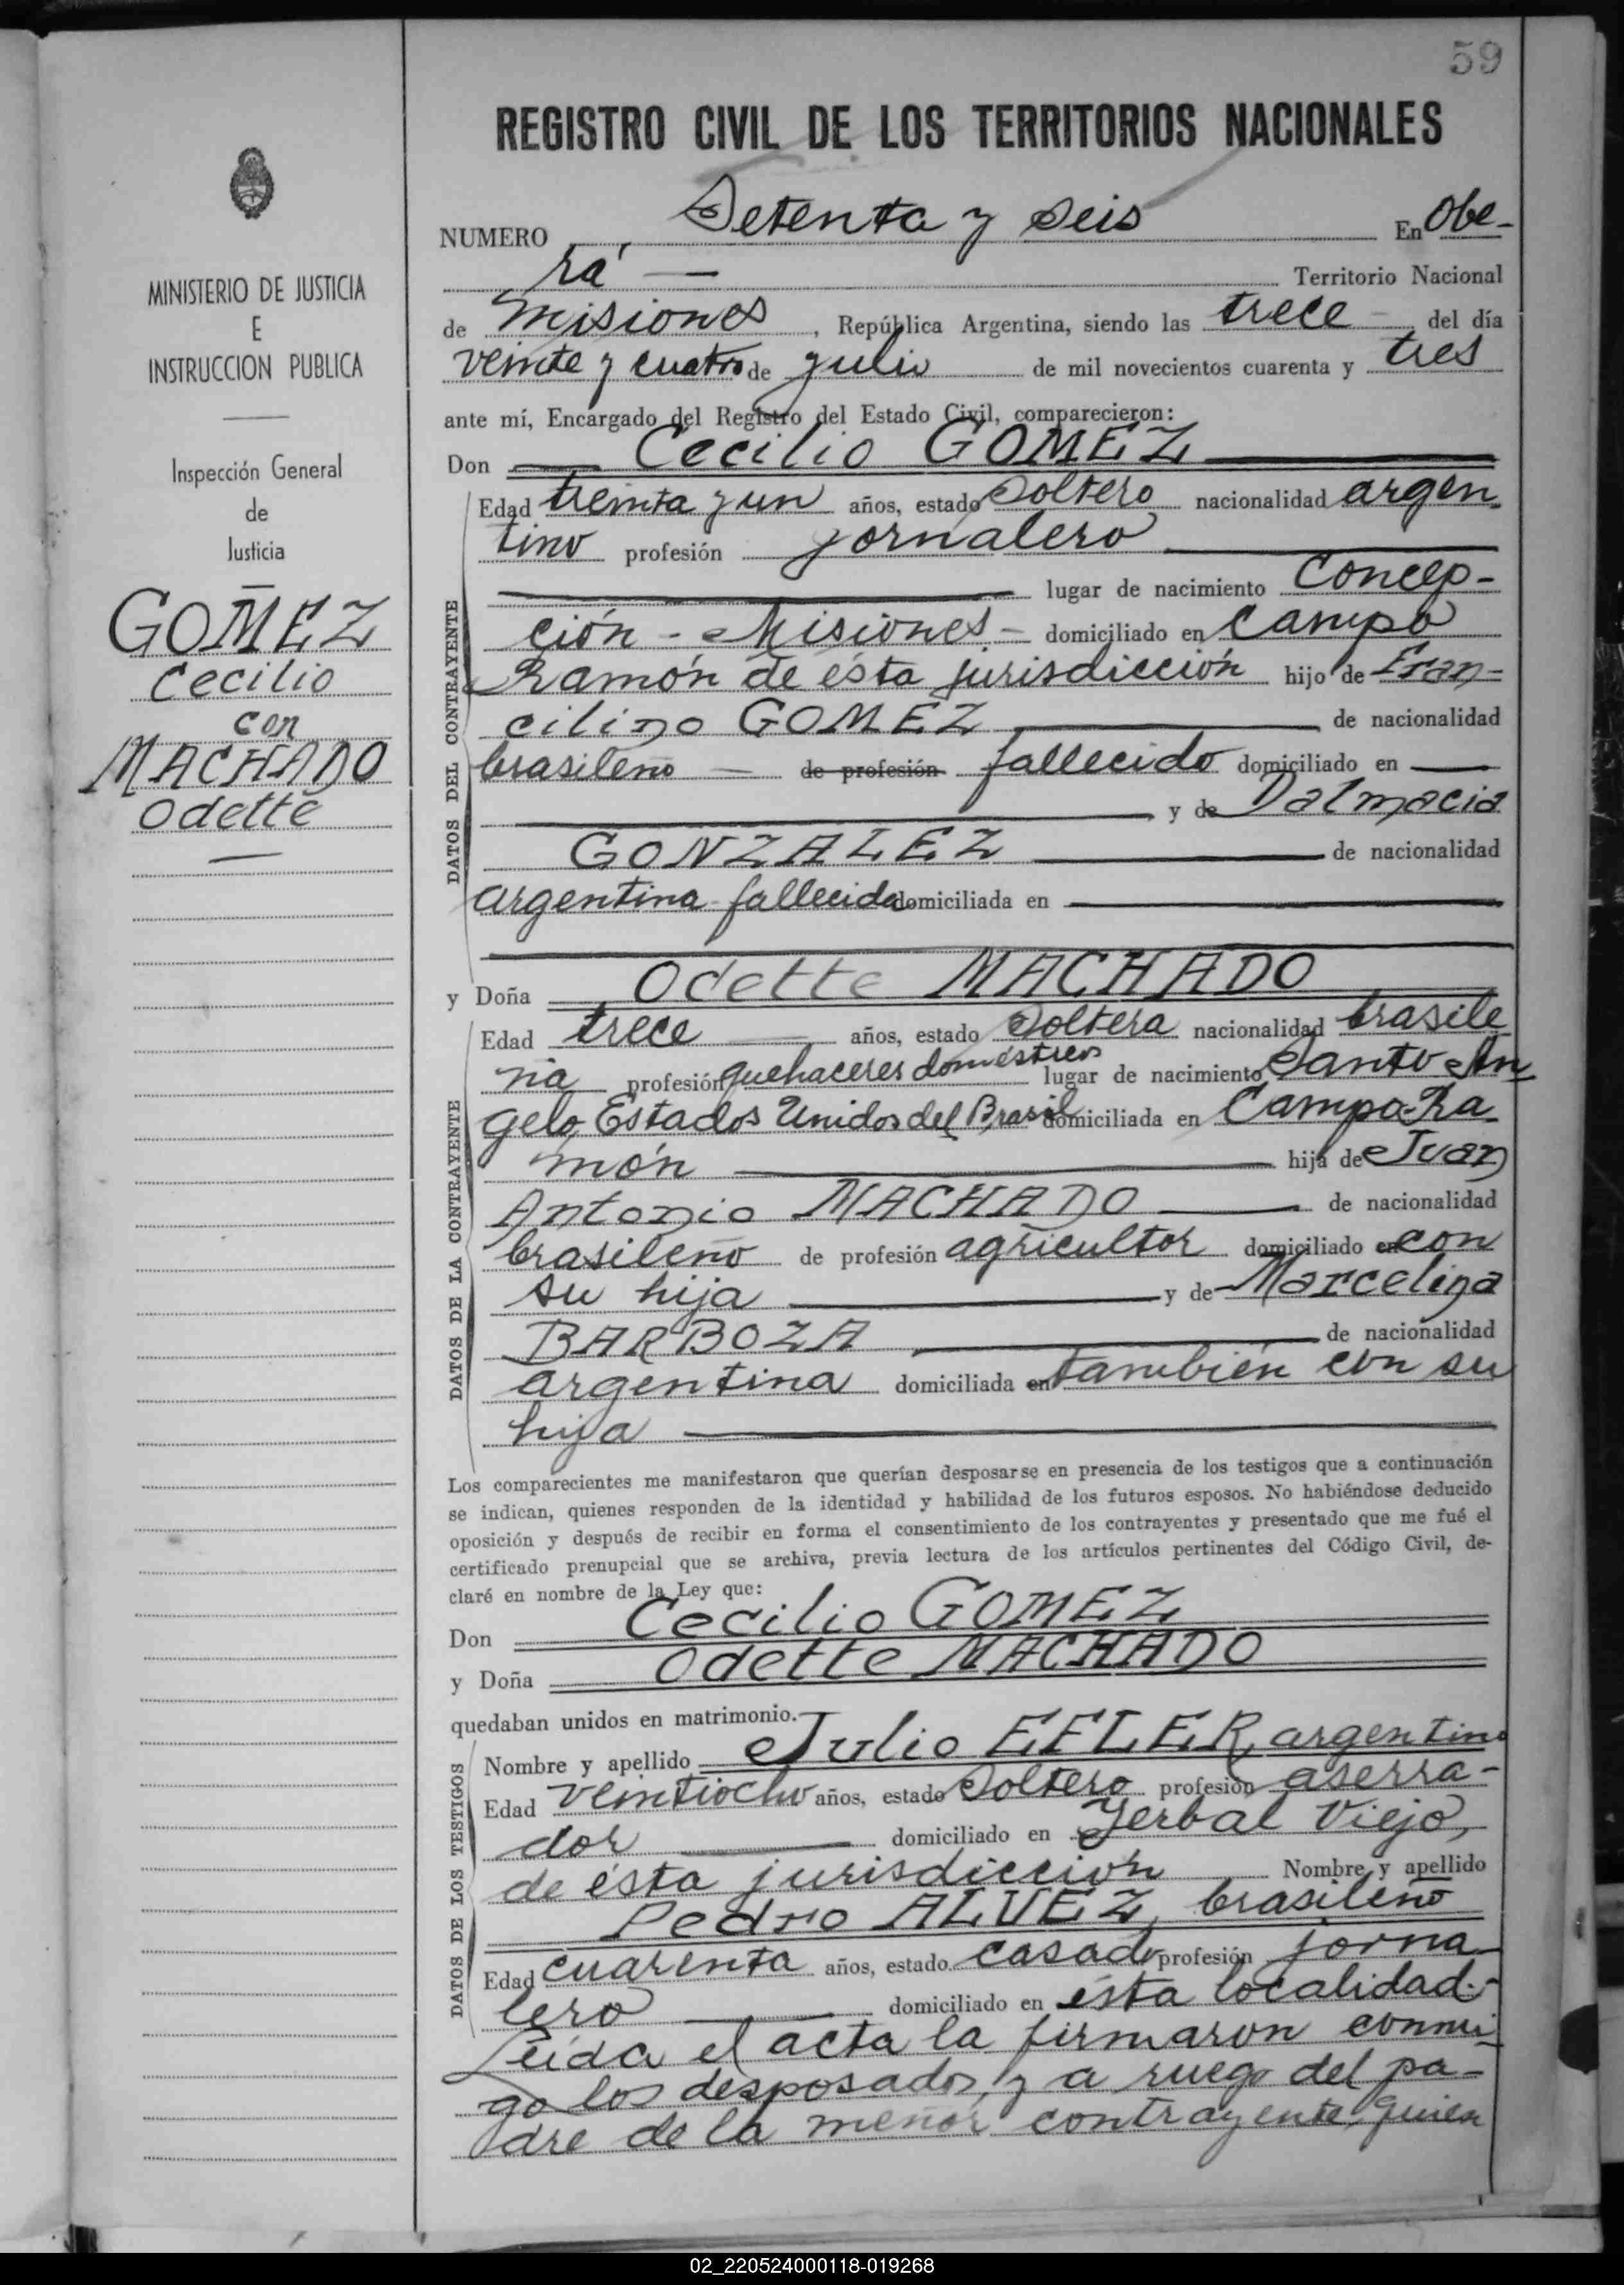 59
REGISTRO CIVIL DE LOS TERRITORIOS NACIONALES
NUMERO Setenta y Seis En Obe-
rá — Territorio Nacional
de Misiones, República Argentina, siendo las trece del día
veinte y cuatro de julio de mil novecientos cuarenta y tres
ante mí, Encargado del Registro del Estado Civil, comparecieron:
Don Cecilio GOMEZ
Edad treinta y un años, estado Soltero nacionalidad argen-
tino profesión jornalero
lugar de nacimiento Concep-
ción - Misiones - domiciliado en Campo
Ramón de ésta jurisdicción hijo de Fran-
cilino GOMEZ de nacionalidad
brasileño — de profesión fallecido domiciliado en —
y de Dalmacia
GONZALEZ de nacionalidad
argentina fallecida domiciliada en
DATOS DEL CONTRAYENTE
y Doña Odette MACHADO
Edad trece años, estado Soltera nacionalidad brasile-
ña profesión quehaceres domésticos lugar de nacimiento Santo An-
gelo, Estados Unidos del Brasil domiciliada en Campo Ra-
món hija de Juan
Antonio MACHADO de nacionalidad
brasileño de profesión agricultor domiciliado en con
su hija y de Marcelina
BARBOZA de nacionalidad
argentina domiciliada en también con su
hija
DATOS DE LA CONTRAYENTE
Los comparecientes me manifestaron que querían desposarse en presencia de los testigos que a continuación
se indican, quienes responden de la identidad y habilidad de los futuros esposos. No habiéndose deducido
oposición y después de recibir en forma el consentimiento de los contrayentes y presentado que me fué el
certificado prenupcial que se archiva, previa lectura de los artículos pertinentes del Código Civil, de-
claré en nombre de la Ley que:
Don Cecilio GOMEZ
y Doña Odette MACHADO
quedaban unidos en matrimonio.
Nombre y apellido Julio EFLER, argentino
Edad veintiocho años, estado Soltero profesión aserra-
dor domiciliado en Yerbal Viejo,
de ésta jurisdicción Nombre y apellido
Pedro ALVEZ, brasileño
Edad cuarenta años, estado casado profesión jorna-
lero domiciliado en ésta localidad.-
DATOS DE LOS TESTIGOS
Leída el acta la firmaron conmi-
go los desposados, y a ruego del pa-
dre de la menor contrayente, quien
MINISTERIO DE JUSTICIA
E
INSTRUCCION PUBLICA
Inspección General
de
Justicia
GOMEZ
Cecilio
con
MACHADO
Odette
02_220524000118-019268